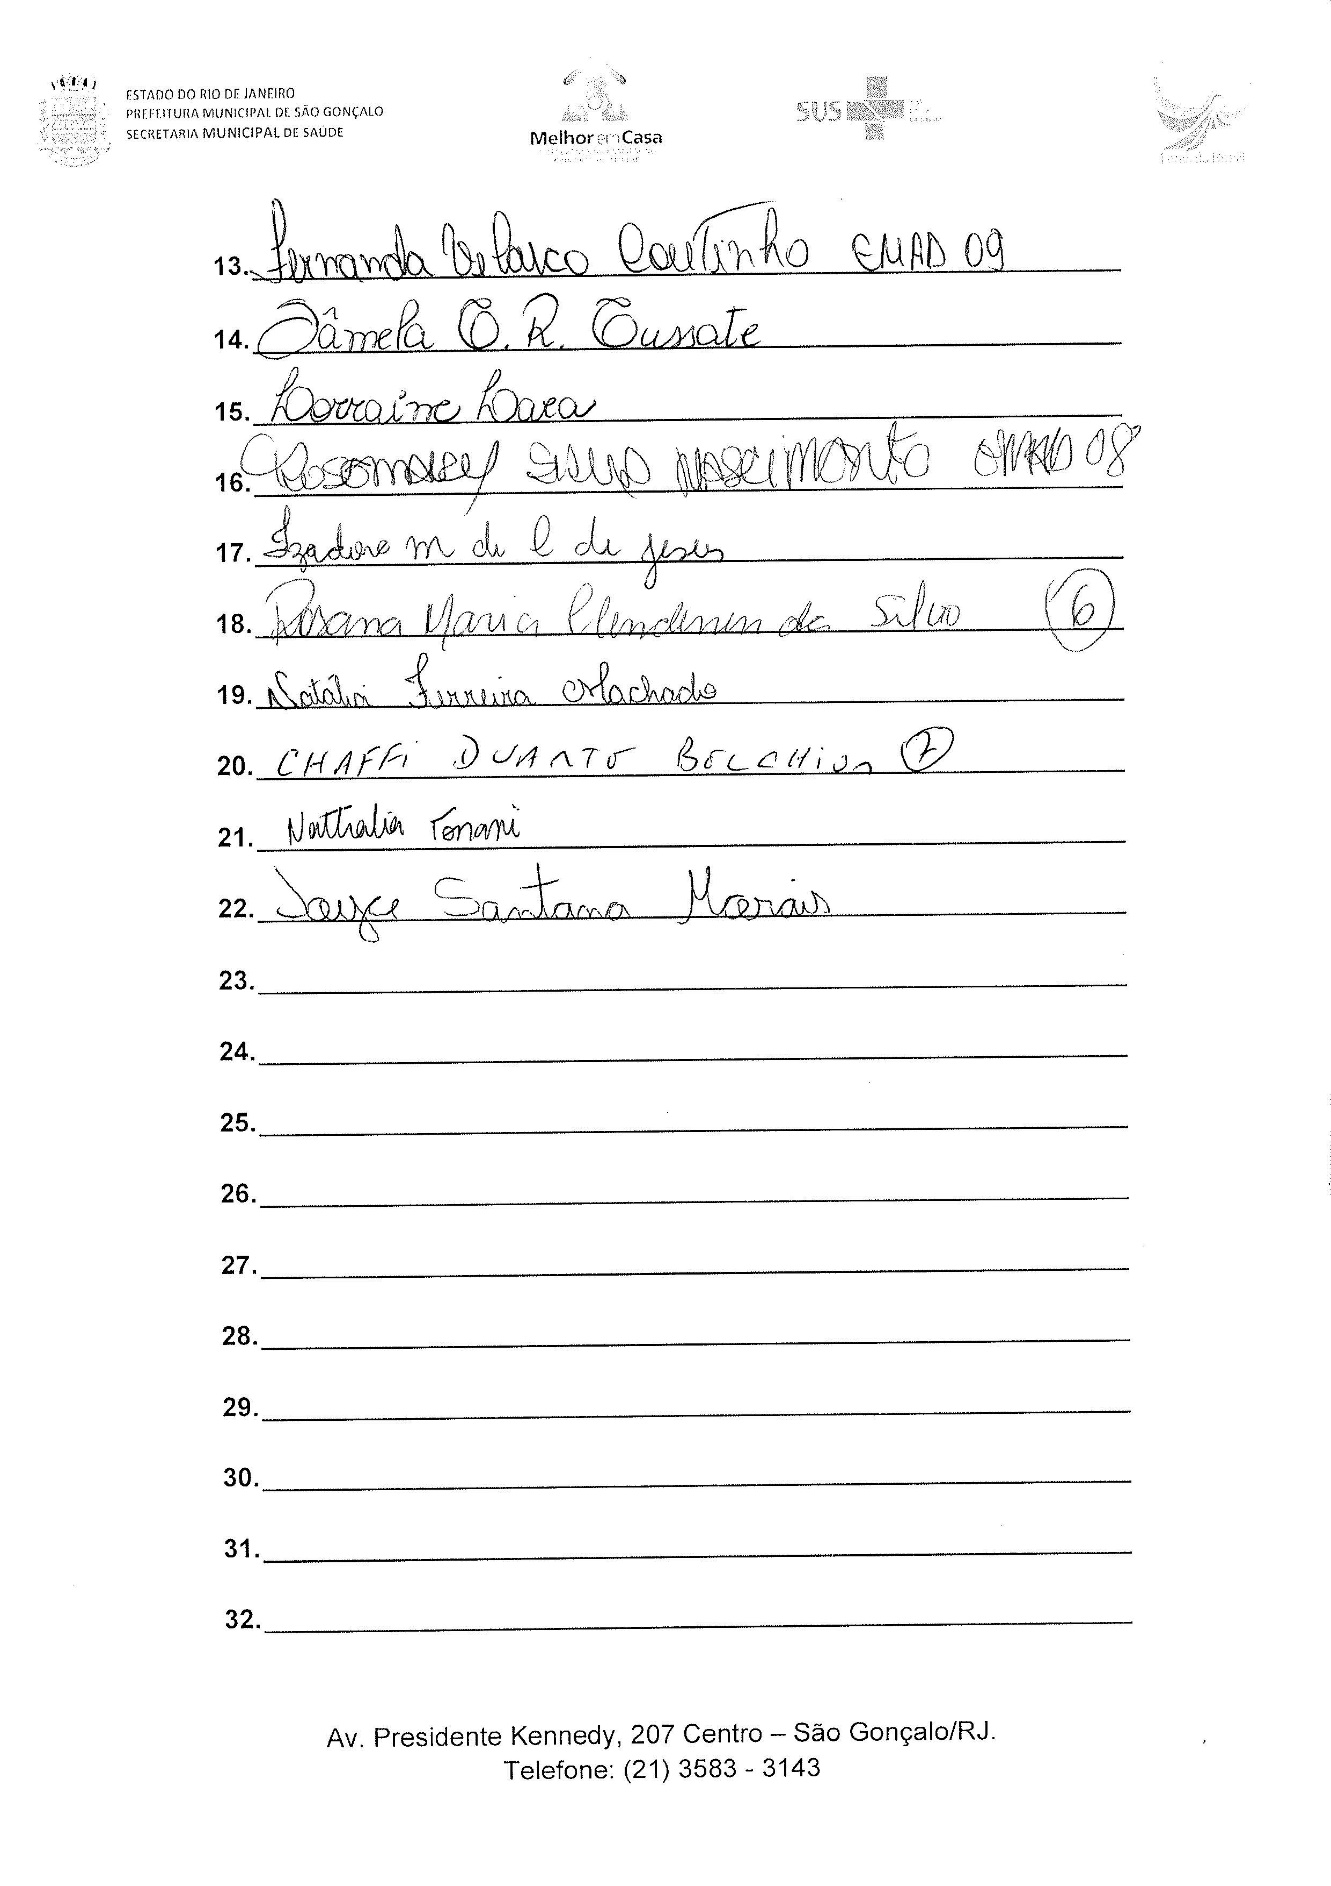 ESTADO DO RIO DE JANEIRO
PREFEITURA MUNICIPAL DE SÃO GONÇALO
SECRETARIA MUNICIPAL DE SAÚDE
Melhor em Casa
SUS
13. Fernanda Velasco Coutinho EMAD 09
14. Tâmela O. R.
15. Lorraine Lara
16. Rosemary Silva Nascimento EMAD 08
17. Izadora M de C de Jesus
18. Rosana Maria da Silva 6
19. Natália Ferreira Machado
20. CHAFFi DUARTE BELCHiOR 7
21. Nathalia Tonani
22. Joyce Santana Morais
23.
24.
25.
26.
27.
28.
29.
30.
31.
32.
Av. Presidente Kennedy, 207 Centro – São Gonçalo/RJ.
Telefone: (21) 3583 - 3143